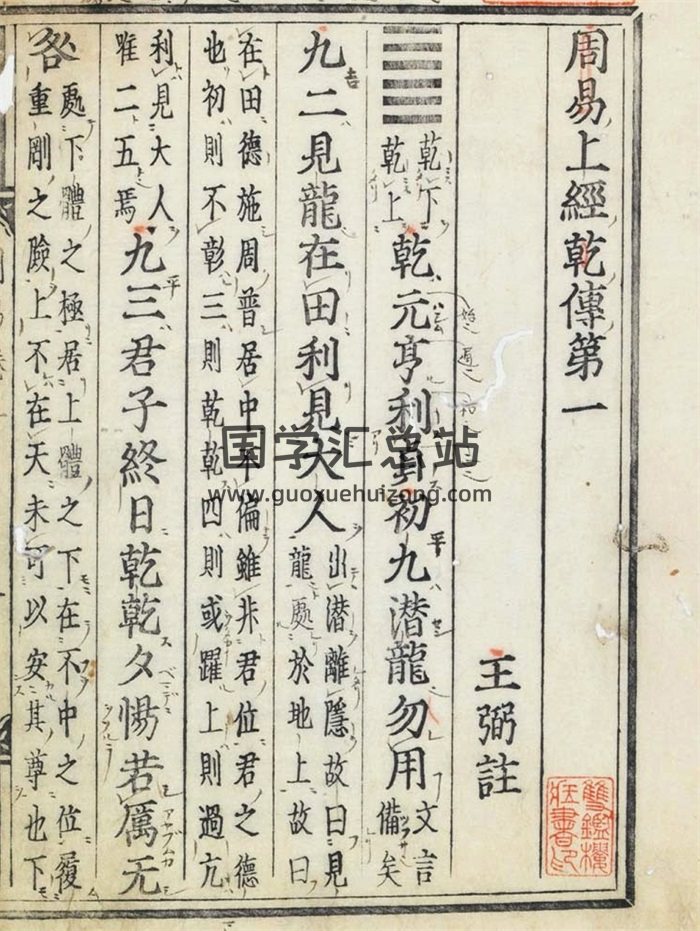 周易上經乾傳第一
王弼註
乾下
乾上
乾元亨利貞初九潛龍勿用
文言
備矣
九二見龍在田利見大人
出潛離隱故曰見
龍處於地上故曰
在田德施周普居中不偏雖非君位君之德
也初則不彰三則乾乾四則或躍上則過亢
利見大人
唯二五焉
九三君子終日乾乾夕惕若厲无
咎
處下體之極居上體之下在不中之位履
重剛之險上不在天未可以安其尊也下
国学汇总站
www.guoxuehuizong.com